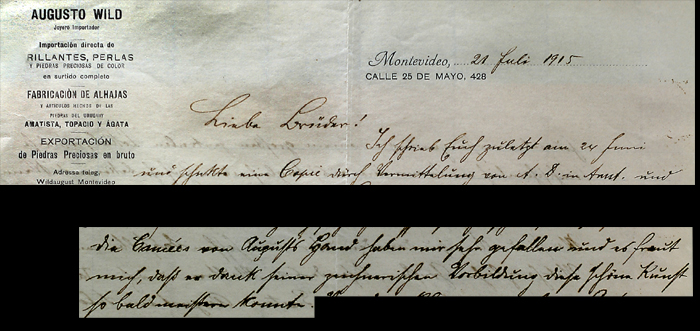 AUGUSTO WILD
Joyero Importador
Importación directa de
BRILLANTES, PERLAS
Y PIEDRAS PRECIOSAS DE COLOR
en surtido completo
FABRICACIÓN DE ALHAJAS
Y ARTICULOS HECHOS DE LAS
PIEDRAS DEL URUGUAY
AMATISTA, TOPACIO Y ÁGATA
EXPORTACIÓN
de Piedras Preciosas en bruto
Adresse teleg.
Wildaugust Montevideo
Montevideo, 21 Juli 1915
CALLE 25 DE MAYO, 428
Liebe Brüder!
Ich schrieb Euch zuletzt am 24 Juni
und schickte eine Copie durch Vermittelung von A. D. in Amst. und
die Camées von Augusts Hand haben mir sehr gefallen und es freut
mich, daß er dank seiner zeichnerischen Vorbildung diese schöne Kunst
so bald meistern konnte.